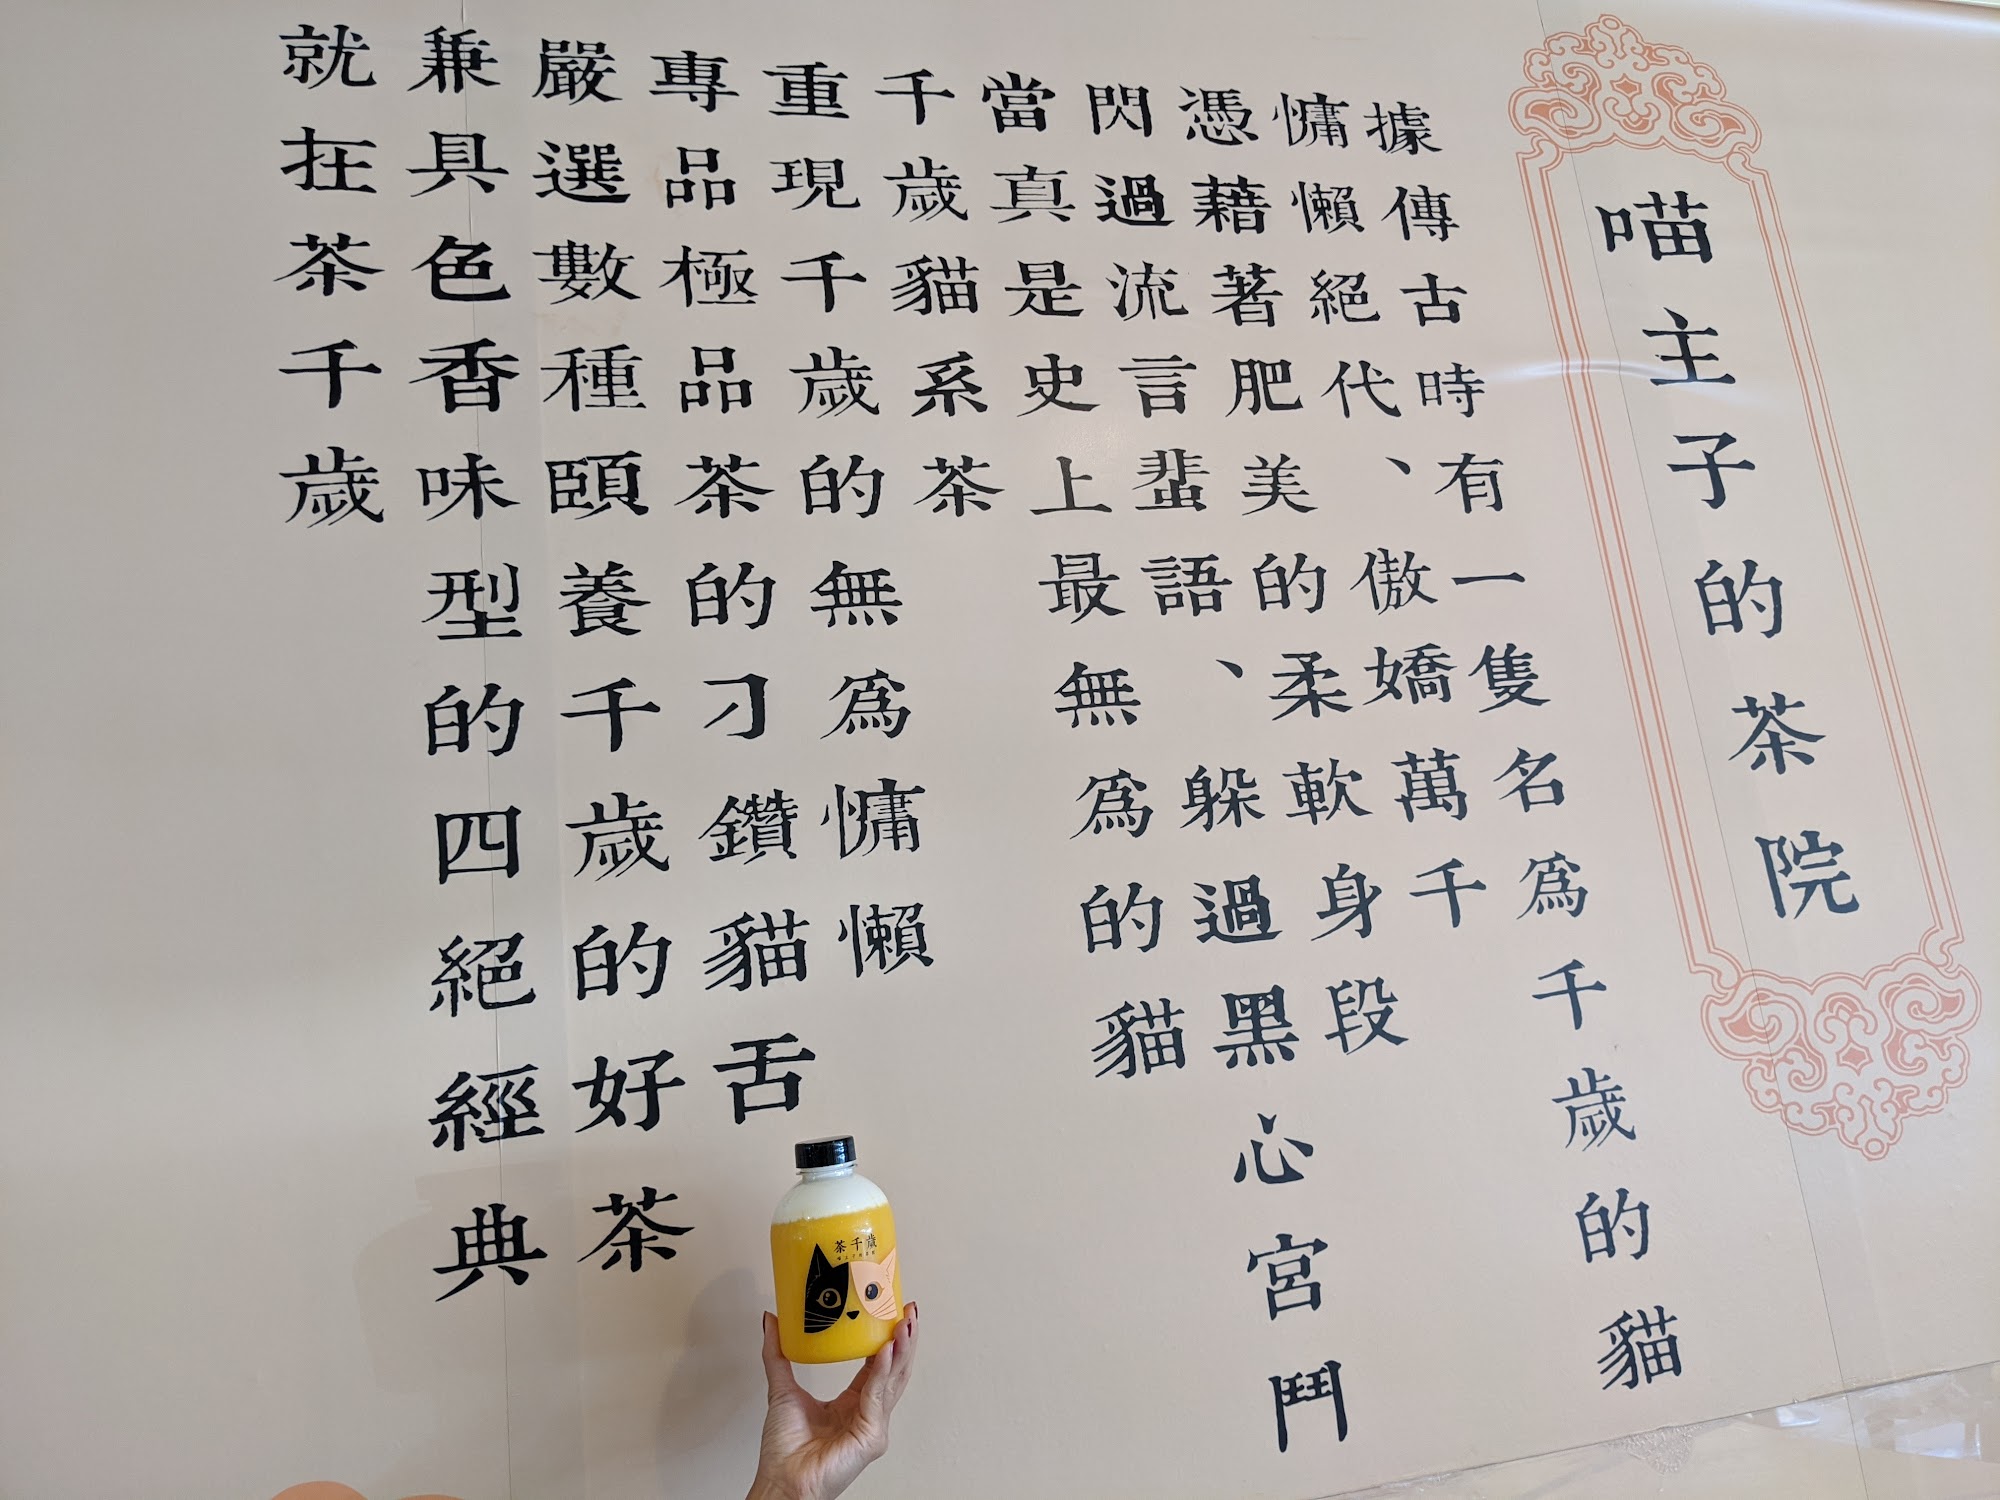 喵主子的茶院
據傳古時有一隻名為千歲的貓
慵懶絕代、傲嬌萬千
憑藉著肥美的柔軟身段
閃過流言蜚語、躲過黑心宮鬥
當真是史上最無為的貓
千歲貓系茶
重現千歲的無為慵懶
專品極品茶的刁鑽貓舌
嚴選數種頤養千歲的好茶
兼具色香味型的四絕經典
就在茶千歲
茶千歲